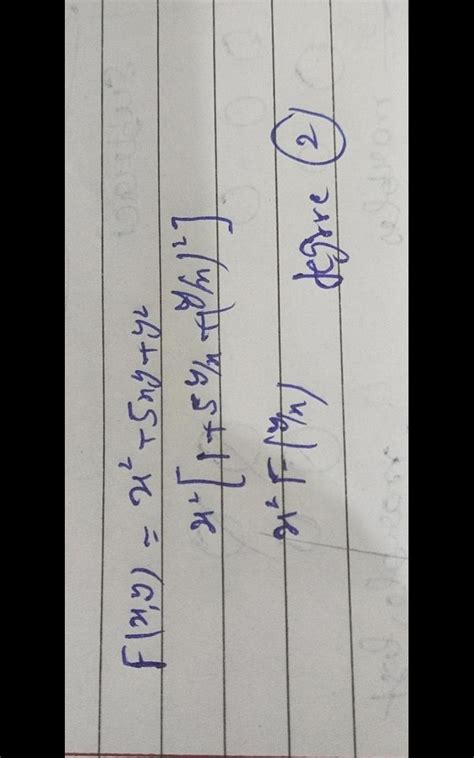 f(x,y) = x² + 5xy + y²
x² [1 + 5y/x + (y/x)²]
x² F (y/x) degree 2